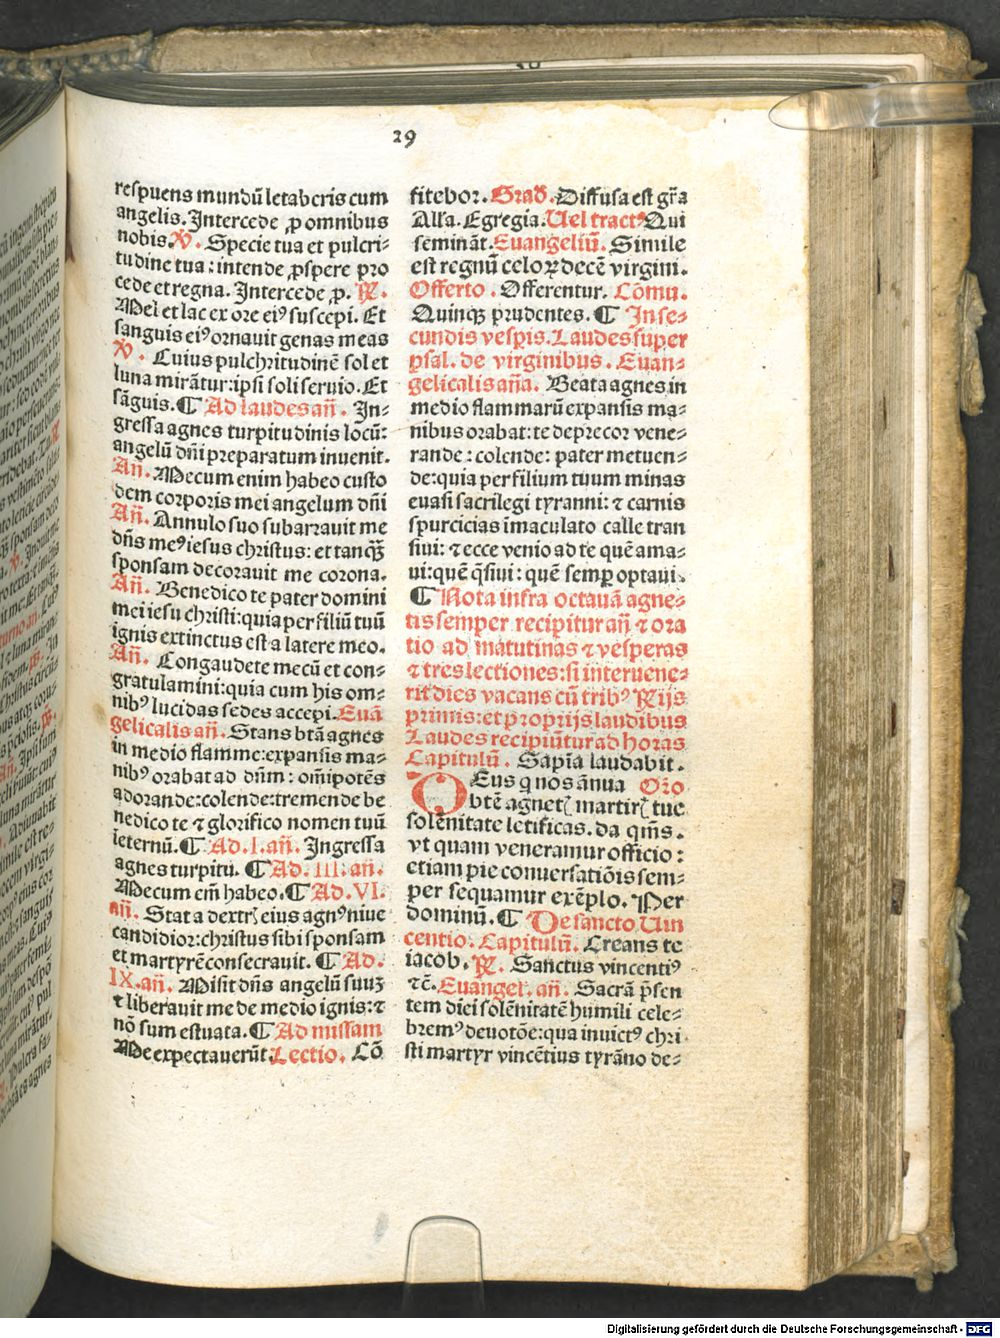 29
respuens mundū letaberis cum
angelis. Intercede ꝓ omnibus
nobis. ℣. Specie tua et pulcri⸗
tudine tua: intende ꝓspere pro
cede et regna. Intercede ꝓ. ℟.
Mel et lac ex ore eiꝰ suscepi. Et
sanguis eiꝰ ornauit genas meas
℣. Cuius pulchritudinē sol et
luna mirātur: ipsi soli seruio. Et
sāguis. ¶ Ad laudes añ. In⸗
gressa agnes turpitudinis locū:
angelū dñi preparatum inuenit.
An. Mecum enim habeo custo
dem corporis mei angelum dñi
Añ. Annulo suo subarrauit me
dñs meꝰ iesus christus: et tanqȝ
sponsam decorauit me corona.
Añ. Benedico te pater domini
mei iesu christi: quia per filiū tuū
ignis extinctus est a latere meo.
Añ. Congaudete mecū et con⸗
gratulamini: quia cum his om⸗
nibꝰ lucidas sedes accepi. Euā
gelicalis añ. Stans btā agnes
in medio flamme: expansis ma⸗
nibꝰ orabat ad dñm: oīpotēs
adorande: colende: tremende be
nedico te ⁊ glorifico nomen tuū
ieternū. ¶ Ad. I. añ. Ingressa
agnes turpitu. ¶ Ad. III. añ.
Mecum em̄ habeo. ¶ Ad. VI.
añ. Stat a dextrꝭ eius agnꝰ niue
candidior: christus sibi sponsam
et martyrē consecrauit. ¶ Ad.
IX. añ. Misit dñs angelū suuȝ
⁊ liberauit me de medio ignis: ⁊
nō sum estuata. ¶ Ad missam
Me expectauerūt. Lectio. Cō
fitebor. Grad. Diffusa est gr̄a
Alla. Egregia. Uel tractꝰ Qui
semināt. Euangeliū. Simile
est regnū celoꝝ decē virgini.
Offerto. Offerentur. Cōmu.
Quinqȝ prudentes. ¶ In se⸗
cundis vesꝑis. Laudes super
psal. de virginibus. Euan⸗
gelicalis aña. Beata agnes in
medio flammarū expansis ma⸗
nibus orabat: te deprecor vene⸗
rande: colende: pater metuen⸗
de: quia per filium tuum minas
euasi sacrilegi tyranni: ⁊ carnis
spurcicias īmaculato calle tran
siui: ⁊ ecce venio ad te quē ama⸗
ui: quē q̄siui: quē semꝑ optaui.
¶ Nota infra octauā agne⸗
tis semper recipitur añ ⁊ ora
tio ad matutinas ⁊ vesperas
⁊ tres lectiones: si interuene⸗
rit dies vacans cū tribꝰ Rijs
primis: et proprijs laudibus
Laudes recipiūtur ad horas
Capitulū. Sapīa laudabit.
DEus q nos ānua Oro
btē agnetꝭ martirꝭ tue
solēnitate letificas. da qm̄s.
vt quam veneramur officio:
etiam pie conuersatiōis sem⸗
per sequamur exēplo. Per
dominū. ¶ De sancto Uin
centio. Capitulū. Creans te
iacob. ℟. Sanctus vincentiꝰ
⁊c̄. Euangel. añ. Sacrā p̄sen
tem diei solēnitatē humili cele⸗
bremꝰ deuotōe: qua inuictꝰ chri
sti martyr vincētius tyrāno de⸗
Digitalisierung gefördert durch die Deutsche Forschungsgemeinschaft - DFG